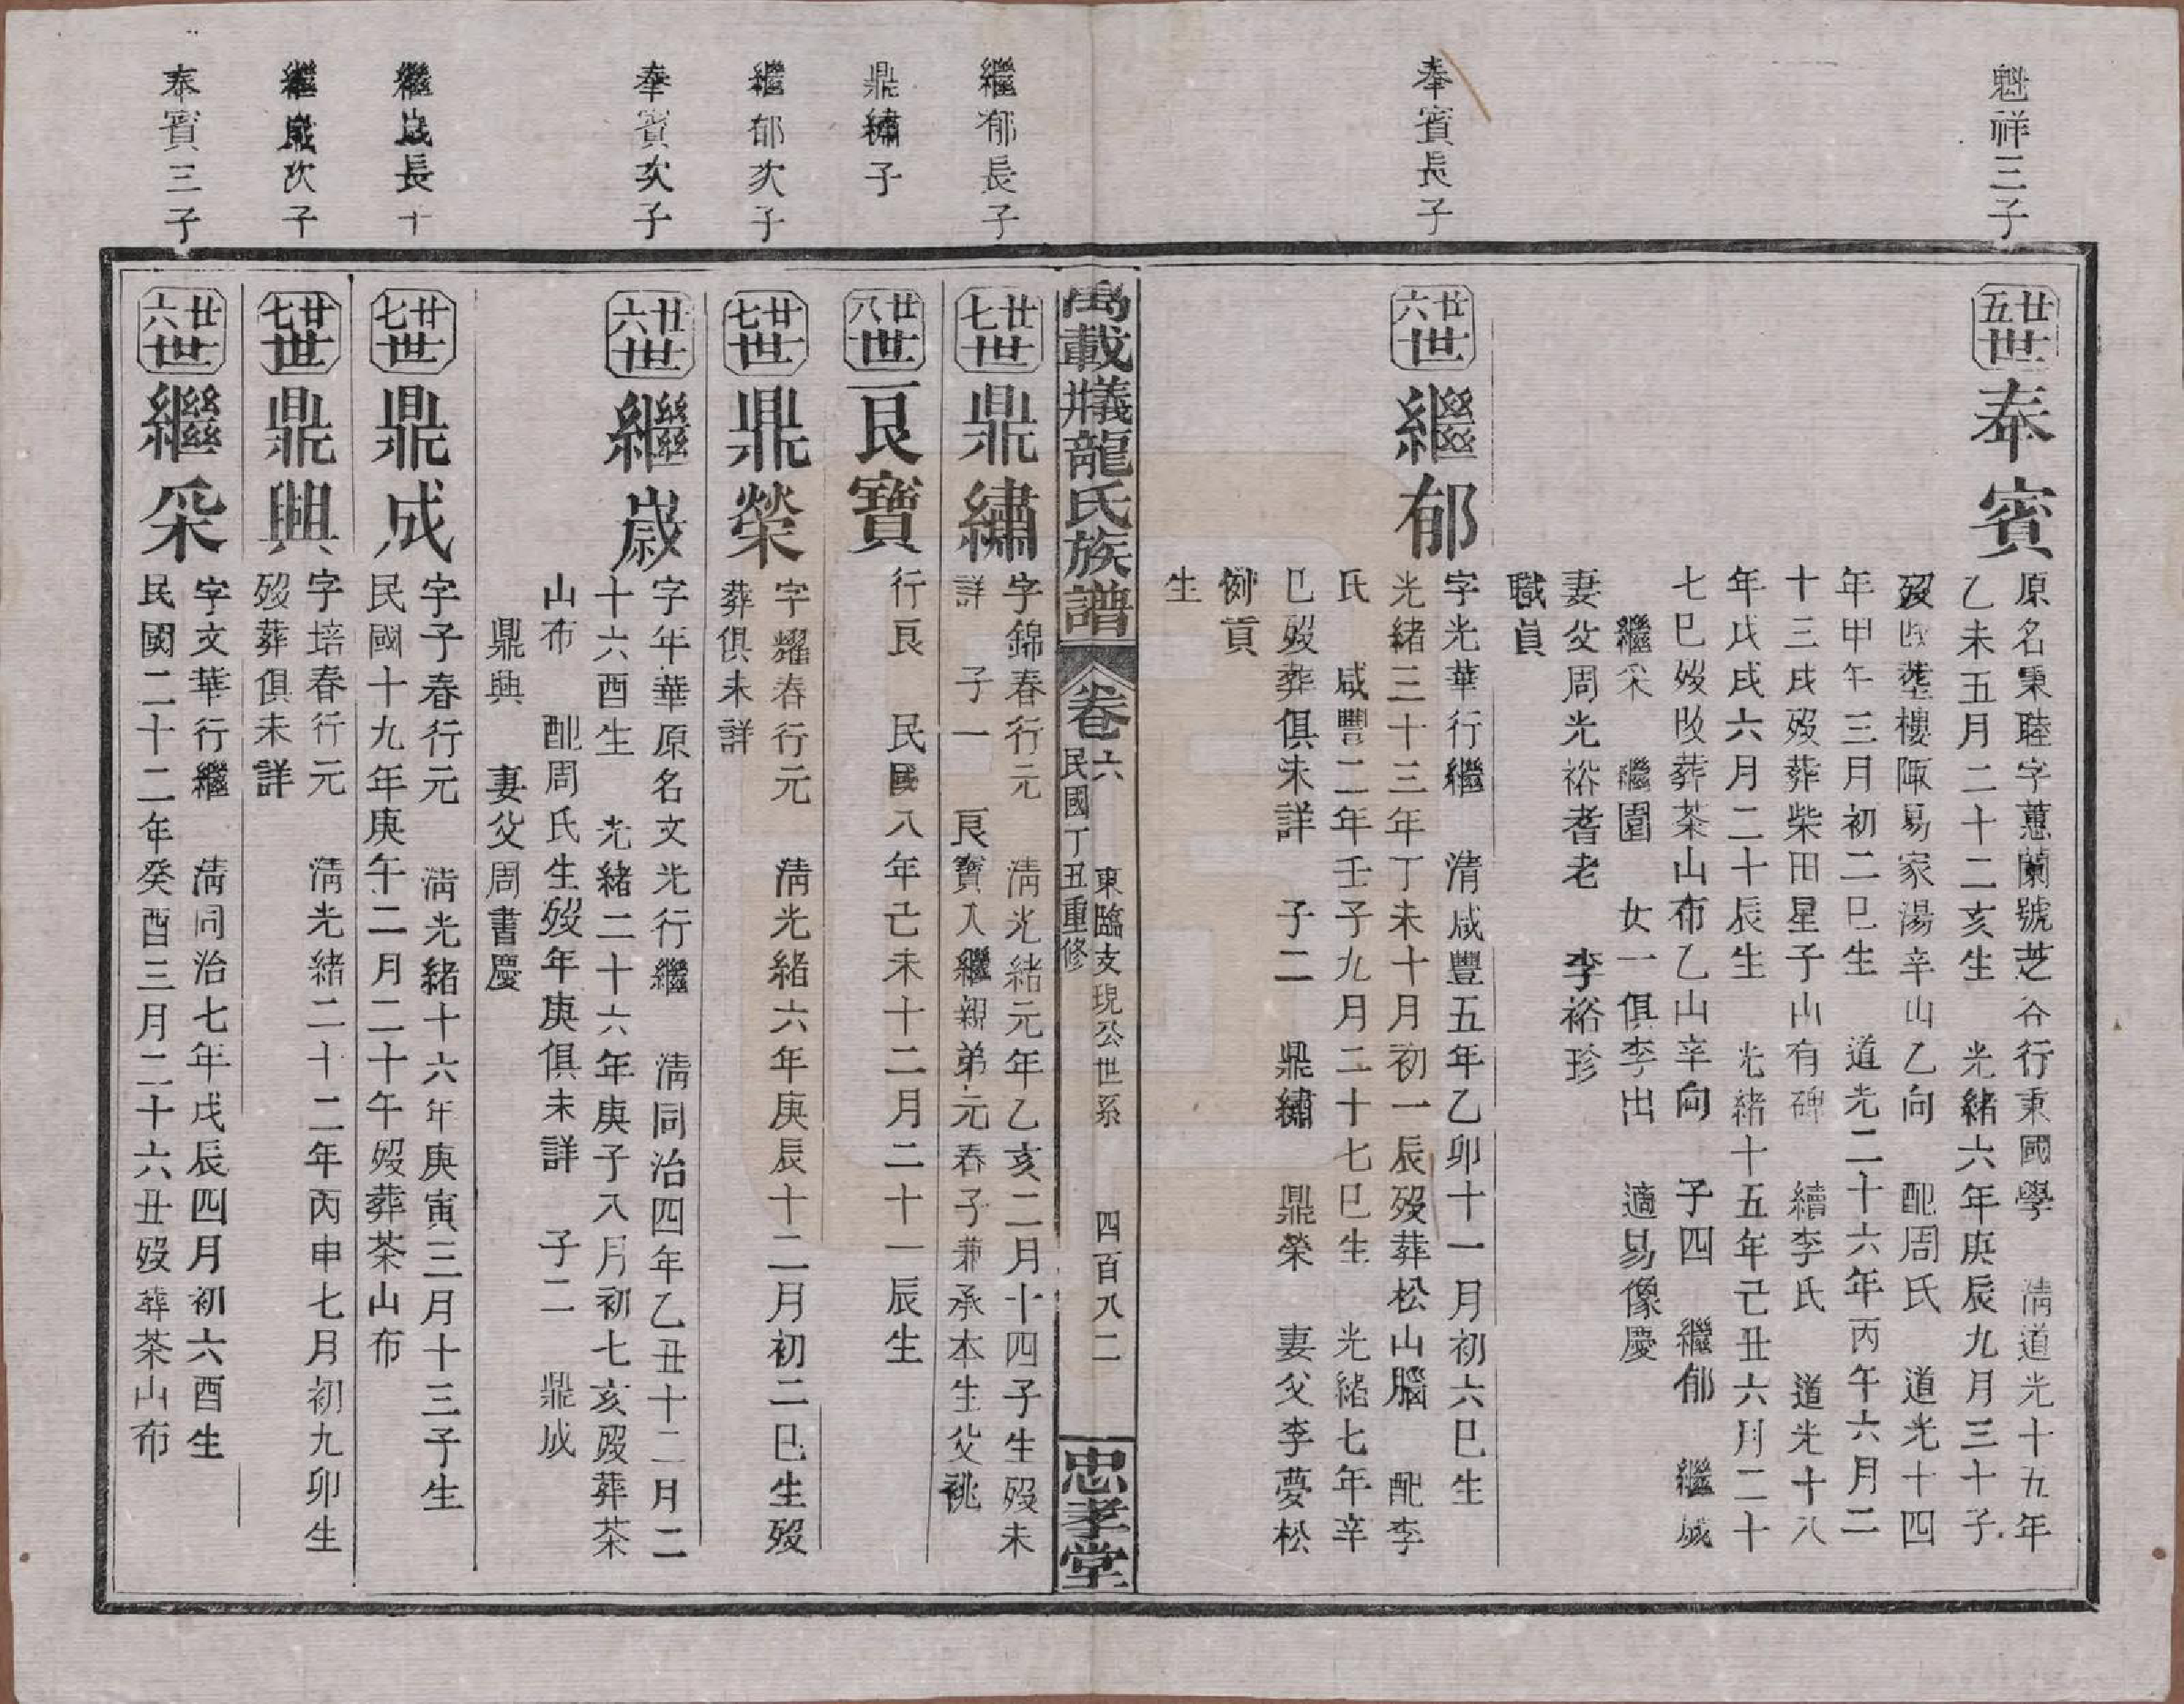 魁祥三子
廿五世
奉賓
原名秉睦字蕙蘭號芝谷行秉國學　清道光十五年
乙未五月二十二亥生　光緒六年庚辰九月三十子
歿改塟樓陬易家湯辛山乙向　配周氏　道光十四
年甲午三月初二巳生　道光二十六年丙午六月二
十三戌歿葬柴田星子山有碑　續李氏　道光十八
年戊戌六月二十辰生　光緒十五年己丑六月二十
七巳歿改葬茶山布乙山辛向　子四　繼郁　繼歲
繼采　繼園　女一俱李出　適易像慶
妻父周光裕耆老　李裕珍
職員
奉賓長子
廿六世
繼郁
字光華行繼　清咸豐五年乙卯十一月初六巳生
光緒三十三年丁未十月初一辰歿葬松山腦　配李
氏　咸豐二年壬子九月二十七巳生　光緒七年辛
巳歿葬俱未詳　子二　鼎繡　鼎榮　妻父李夢松
例貢
生
萬載㸁龍氏族譜
卷六
民國丁丑重修
東臨支現公世系
四百八二
忠孝堂
繼郁長子
廿七世
鼎繡
字錦春行元　清光緒元年乙亥二月十四子生歿未
詳　子一　艮寶入繼親弟元春子兼承本生父祧
鼎繡子
廿八世
艮寶
行艮　民國八年己未十二月二十一辰生
繼郁次子
廿七世
鼎榮
字耀春行元　清光緒六年庚辰十二月初二巳生歿
葬俱未詳
奉賓次子
廿六世
繼歲
字年華原名文光行繼　清同治四年乙丑十二月二
十六酉生　光緒二十六年庚子八月初七亥歿葬茶
山布　配周氏生歿年庚俱未詳　子二　鼎成
鼎興　妻父周書慶
繼歲長子
廿七世
鼎成
字子春行元　清光緒十六年庚寅三月十三子生
民國十九年庚午二月二十午歿葬茶山布
繼歲次子
廿七世
鼎興
字培春行元　清光緒二十二年丙申七月初九卯生
歿葬俱未詳
奉賓三子
廿六世
繼采
字文華行繼　清同治七年戊辰四月初六酉生
民國二十二年癸酉三月二十六丑歿葬茶山布